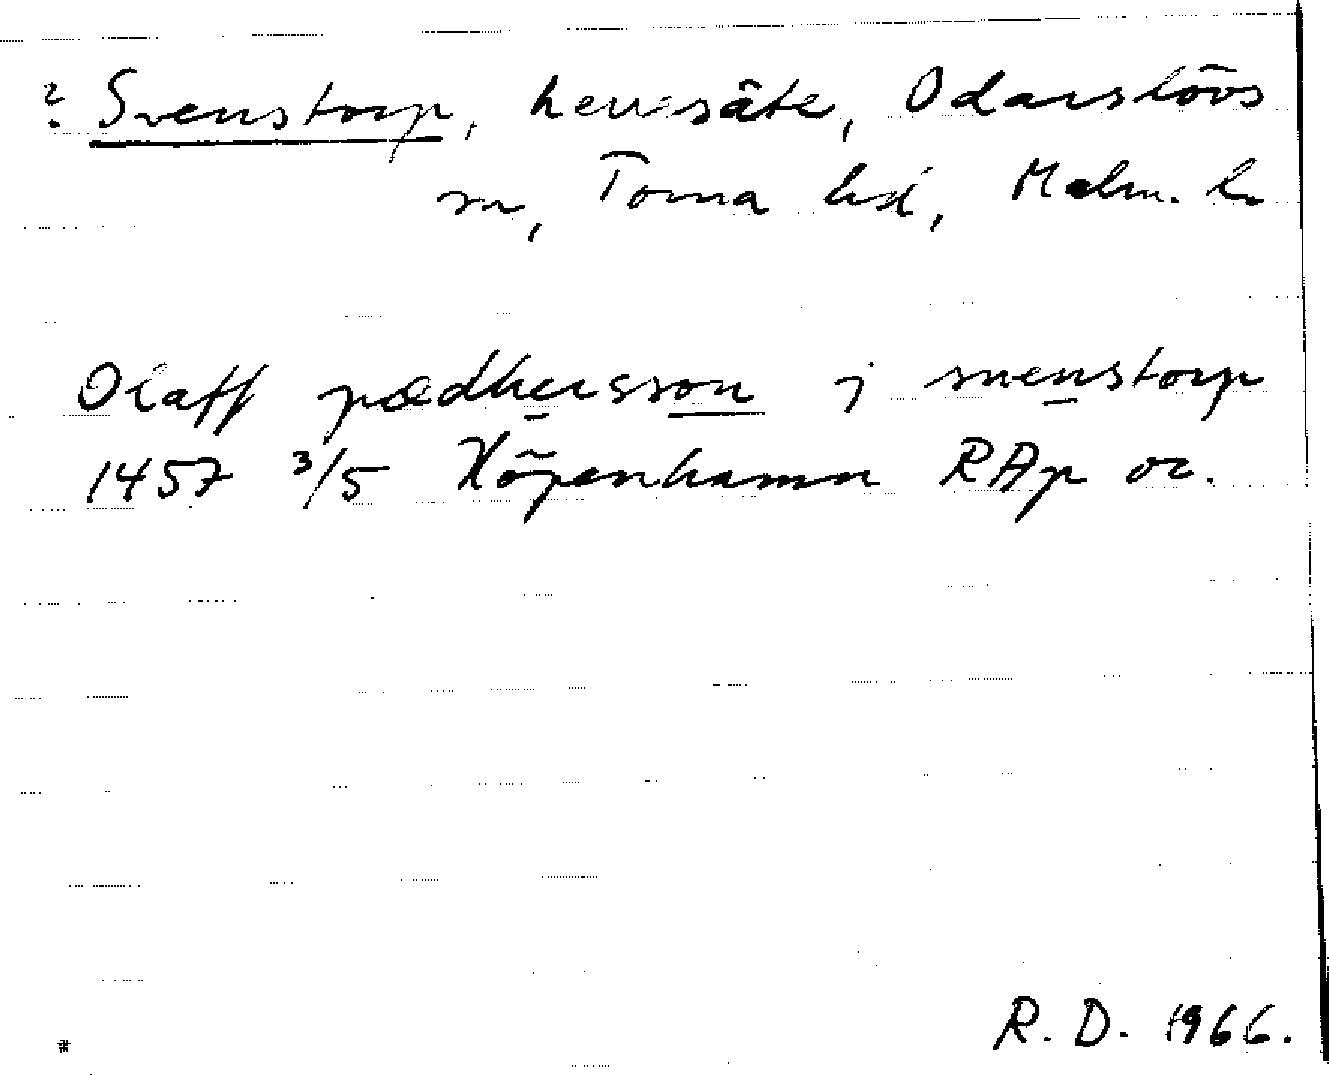 ? Svenstorp, herresäte, Odarslövs
sn, Torna hd, Malm. l.
Olaff pædhersson j suenstorp
1457 3/5 Köpenhamn RAp or.
R. D. 1966.